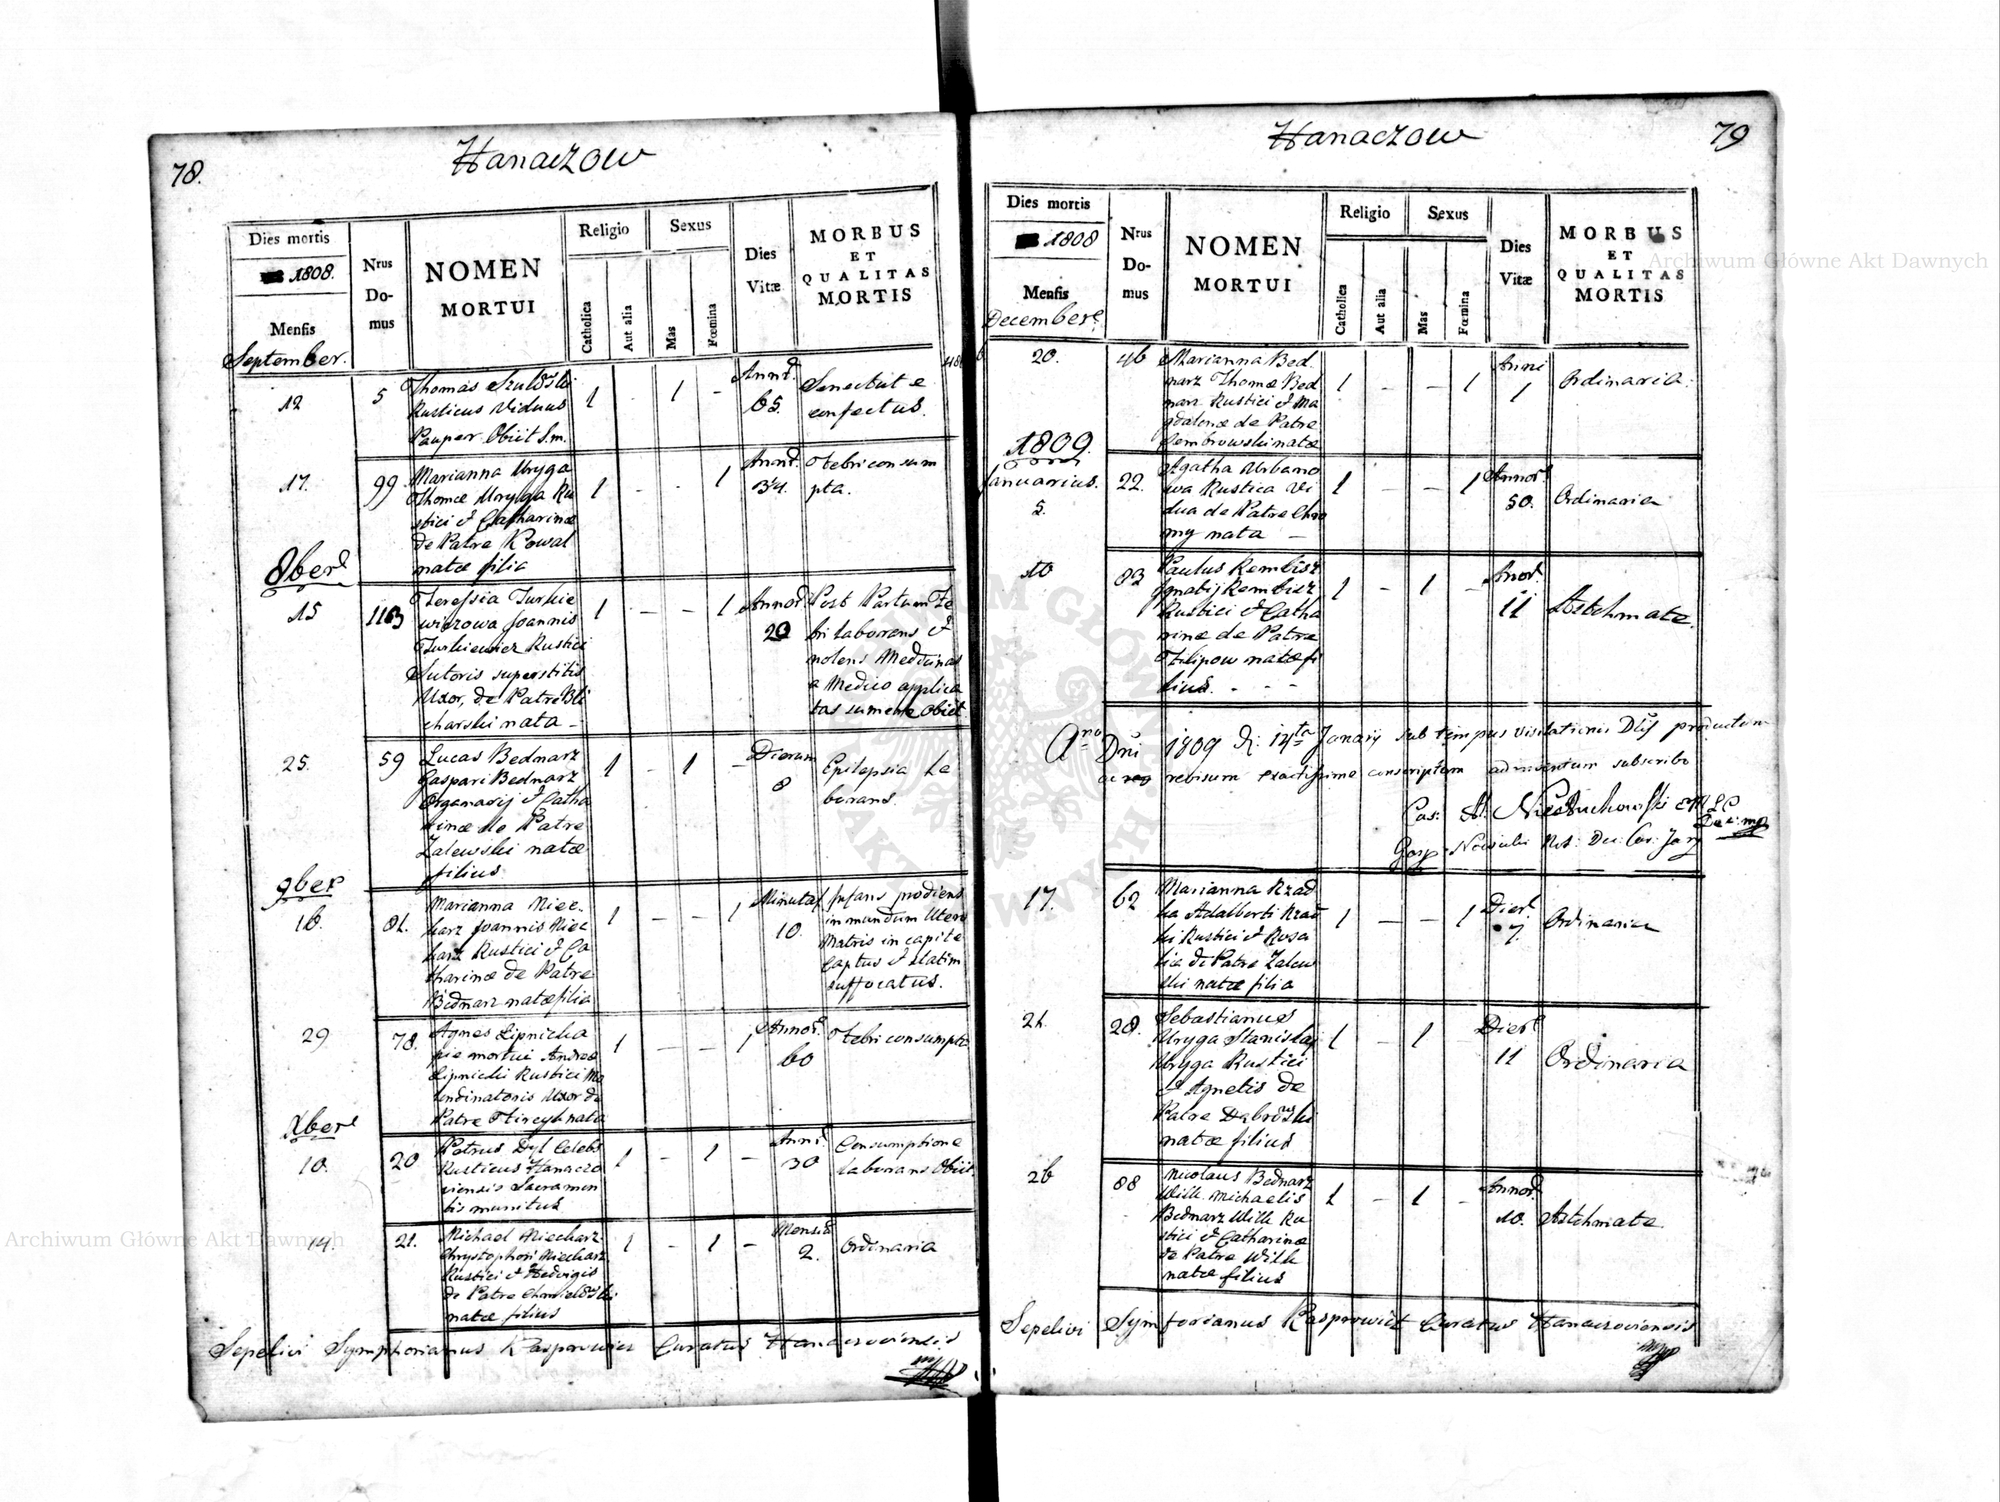 78.
Hanaczow
Dies mortis
1808.
Mensis
September.
Nrus
Do-
mus
NOMEN
MORTUI
Religio
Catholica
Aut alia
Sexus
Mas
Fœmina
Dies
Vitæ
MORBUS
ET
QUALITAS
MORTIS
12
5
Thomas
Rusticus Viduus
Pauper Obiit S.m.
1
-
1
-
Annor.
65.
Senectute
confectus.
17.
99
Marianna Uryga
Thomæ Uryga Ru
stici et Catharinæ
de Patre Kowal
natæ filia
1
-
-
1
Annor.
34.
Febri consum
pta.
8bere
15
113
Teressia Turkie
wiczowa Joannis
Turkiewicz Rustici
Sutoris superstitis
Uxor, de Patre Bli
charski nata -
1
-
-
1
Annor.
20
Post Partum Fe
bri laborans et
nolens Medicinas
a Medico applica
tas sumere Obiit.
25.
59
Lucas Bednarz
Gaspari Bednarz
Organarij et Catha
rinæ de Patre
Zalewski natæ
filius
1
-
1
-
Dierum
8
Epilepsia La
borans.
9ber
16.
81.
Marianna Niec
harz Joannis Niec
harz Rustici et Ca
tharinæ de Patre
Bednarz natæ filia
1
-
-
1
Minutas
10.
Infans prodiens
in mundum Utero
Matris in capite
captus et statim
suffocatus.
29
78.
Agnes Lipnicka
pie mortui Andreæ
Lipnicki Rustici Mo
lendinatoris Uxor de
Patre nata
1
-
-
1
Annor.
60
Febri consumpta
Xbere
10.
20
Petrus Dyl Celebs
Rusticus Hanaczo
viensis Sacramen
tis munitus
1
-
1
-
Annor.
30
Consumptione
laborans Obiit.
14.
21.
Michael Niecharz
Chrystophori Niecharz
Rustici et Hedvigis
de Patre Chmielowski
natæ filius
1
-
1
-
Mensis
2.
Ordinaria
Sepelivi Symphorianus Kasprowicz Curatus Hanaczoviensis
mp
Hanaczow
79
Dies mortis
1808
Mensis
Decembere
Nrus
Do-
mus
NOMEN
MORTUI
Religio
Catholica
Aut alia
Sexus
Mas
Fœmina
Dies
Vitæ
MORBUS
ET
QUALITAS
MORTIS
20.
46
Marianna Bed
narz Thomæ Bed
narz Rustici et Ma
gdalenæ de Patre
Dembrowski natæ
1
-
-
1
Anni
1
Ordinaria.
1809.
Januarius.
5.
22.
Agatha Urbano
wa Rustica Vi
dua de Patre Chro
my nata -
1
-
-
1
Annor.
50.
Ordinaria
10
83
Paulus Rembisz
Ignatij Rembisz
Rustici et Catha
rinæ de Patre
Filipow natæ fi
lius. - - -
1
-
1
-
Anor.
11
Astchmate.
Ano Dni 1809 d: 14ta Januarij sub tempus visitationis Dnj productum
ac revisum exactissime conscriptum adinventum subscribo
Cas: A: Nieduchowski
17.
62
Marianna Rzad
ka Adalberti Rzad
ki Rustici et Rosa
lia de Patre Zalew
ski natæ filia
1
-
-
1
Dier.
7.
Ordinaria
21.
28.
Sebastianus
Uryga Stanislaj
Uryga Rustici
et Agnetis de
Patre Dąbrowski
natæ filius
1
-
1
-
Dier.
11
Ordinaria
26
88
Nicolaus Bednarz
Wilk Michaelis
Bednarz Wilk Ru
stici et Catharinæ
de Patre Wilk
natæ filius
1
-
1
-
Annor.
10.
Astchmate.
Sepelivi Symforianus Kasprowicz Curatus Hanaczoviensis
mp
Archiwum Główne Akt Dawnych
Archiwum Główne Akt Dawnych